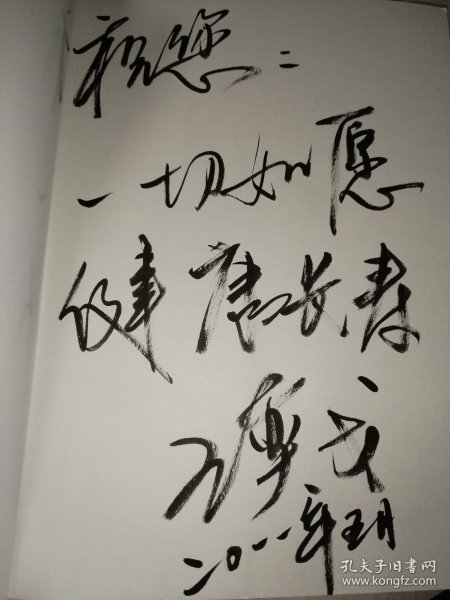 祝您：
一切如愿
健康长寿
二〇一一年五月
孔夫子旧书网
www.kongfz.com